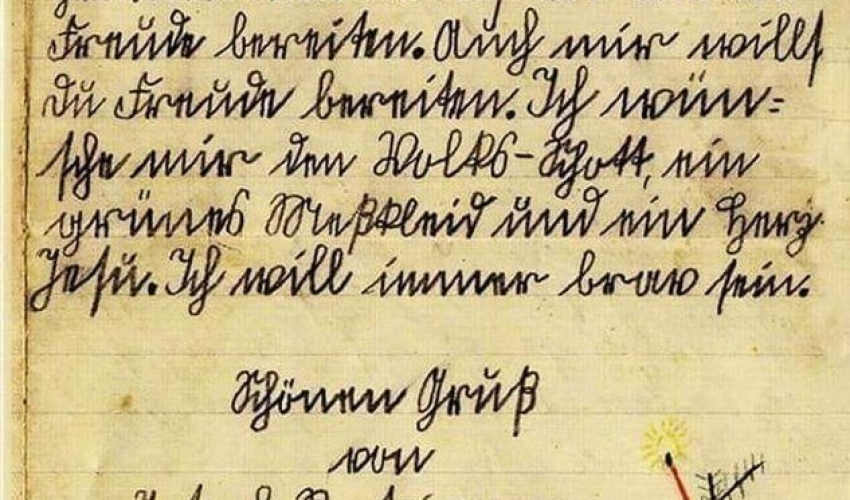 Freude bereiten. Auch mir willst
du Freude bereiten. Ich wün=
sche mir den Volks-Schott, ein
grünes Meßkleid und ein Herz
Jesu. Ich will immer brav sein.
Schönen Gruß
von